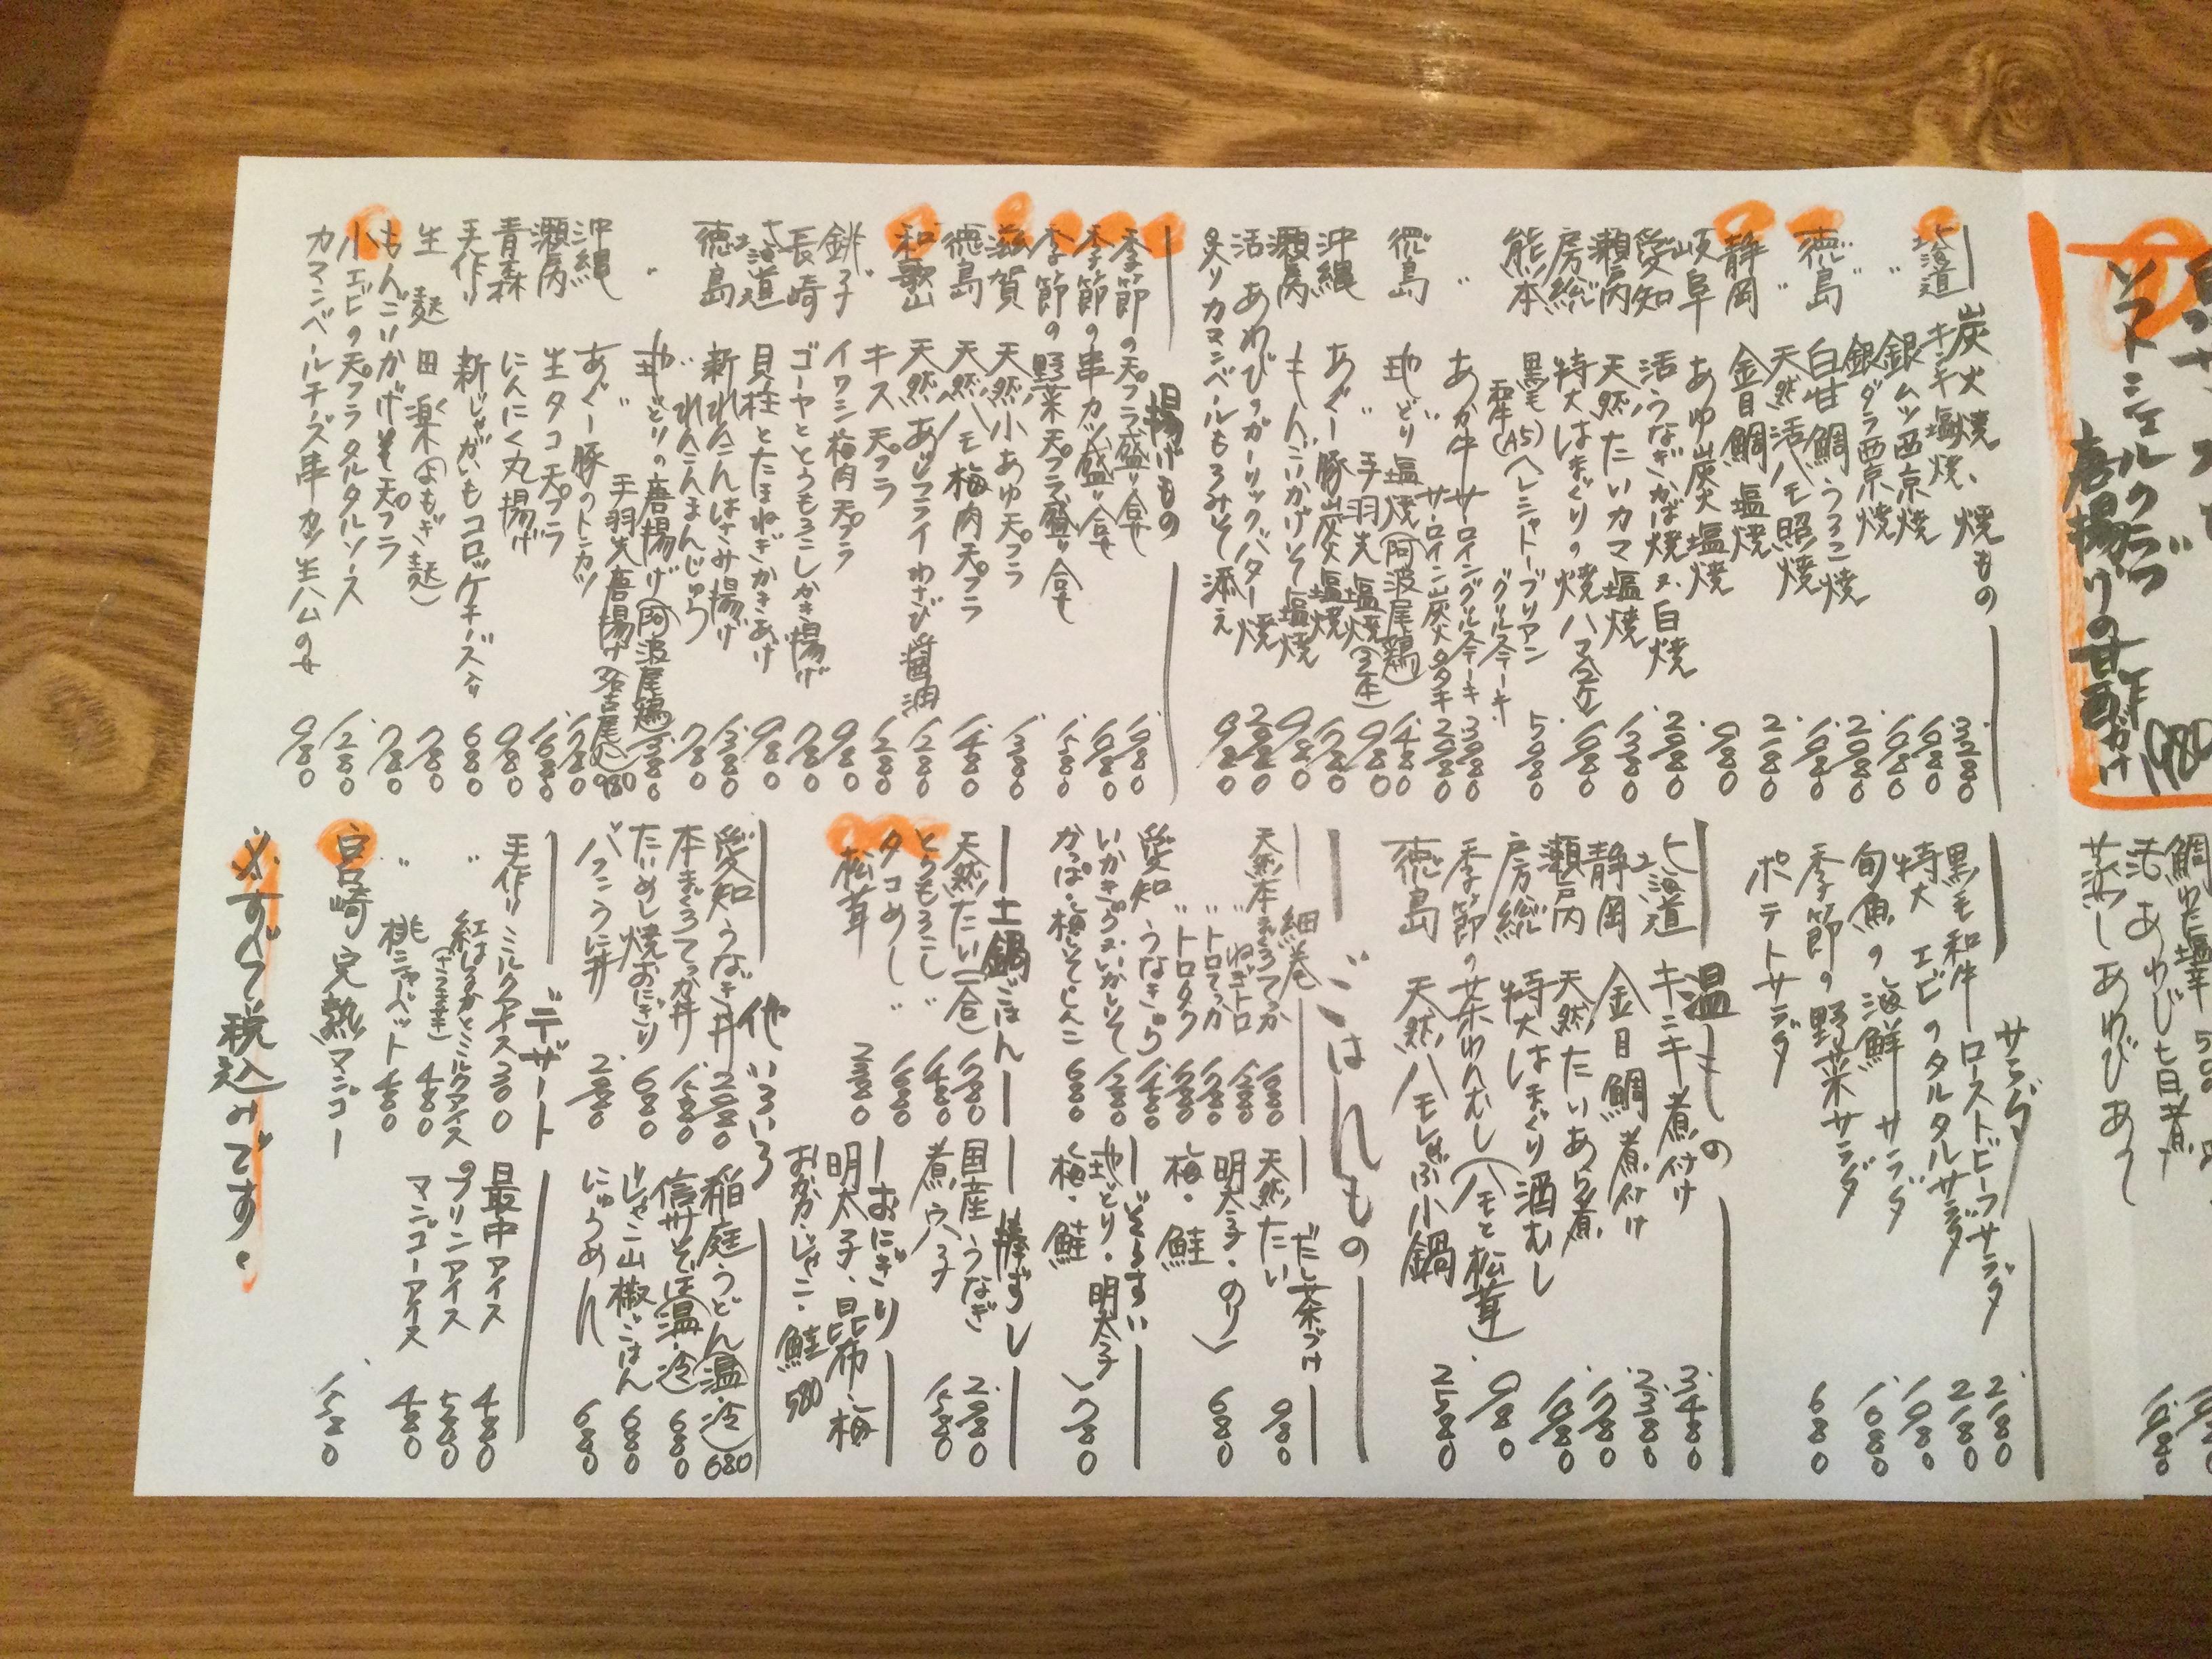 ソフトシェルクラブ
唐揚げの甘酢がけ 1980
活あわび七目煮
蒸しあわび あり
炭火焼、焼もの
北海道 キンキ塩焼 3.280
〃 銀ムツ西京焼 1.680
銀ダラ西京焼
徳島 白甘鯛うろこ焼
〃 天然活ハモ照焼 2.180
静岡 金目鯛塩焼
岐阜 あゆ炭火塩焼 980
愛知 活うなぎかば焼又は白焼 2.980
瀬戸内 天然たいカマ塩焼 1.380
房総 特大はまぐりの焼ハマ
熊本 黒毛(A5)ヘレシャトーブリアン
霜降 グリルステーキ 5.980
〃 あか牛 サーロイングリルステーキ 3.980
サーロイン炭火タタキ 2.980
徳島 地どり塩焼(阿波尾鶏) 1.480
〃 〃 手羽先塩焼(3本) 980
沖縄 あぐー豚炭火塩焼 1.780
瀬戸内 もんごいかげそ塩焼 980
活あわびのガーリックバター焼 2.980
炙りカマンベールもろみそ添え 980
揚げもの
季節の天プラ盛り合せ 1.980
季節の串カツ盛り合せ 1.680
季節の野菜天プラ盛り合せ 1.580
滋賀 天然小あゆ天プラ 1.380
徳島 天然ハモ梅肉天プラ 1.480
和歌山 天然あじフライわさび醤油 1.280
キス天プラ 1.280
銚子 イワシ梅肉天プラ 980
長崎 ゴーヤととうもろこしかき揚げ 780
北海道 貝柱とたまねぎかきあげ 980
徳島 新れんこんはさみ揚げ 1.380
〃 れんこんまんじゅう 780
〃 地どりの唐揚げ(阿波尾鶏) 1.380
〃 手羽先唐揚げ 980
沖縄 あぐー豚のトンカツ 1.780
瀬戸内 生タコ天プラ 1.680
青森 にんにく丸揚げ 980
手作り 新じゃがいもコロッケチーズ入り 680
生麩田楽(よもぎ麩) 780
もんごいかげそ天プラ 780
小エビの天プラタルタルソース 1.280
カマンベールチーズ串カツ生ハムのせ 980
サラダ
黒毛和牛ローストビーフサラダ 2.180
特大エビのタルタルサラダ 2.180
旬魚の海鮮サラダ 1.980
季節の野菜サラダ 1.080
ポテトサラダ 680
温もの
北海道 キンキ煮付け 3.480
静岡 金目鯛煮付け 2.380
瀬戸内 天然たいあら煮 1.780
房総 特大はまぐり酒むし 1.380
季節の茶わんむし(ハモと松茸) 980
徳島 天然ハモしゃぶ小鍋 2.580
ごはんもの
細巻
天然本まぐろてっか 1.680
〃 ねぎトロ 1.280
〃 トロてっか 1.780
〃 トロタク
愛知 うなきゅう 1.480
いかきゅう・いかしそ 1.280
かっぱ・梅しそ・しんこ 680
だし茶づけ
天然たい 980
明太子・のり
梅・鮭 680
ぞうすい
地どり・明太子
梅・鮭 780
土鍋ごはん
天然たい(二合) 1.780
とうもろこし〃 1.480
タコめし〃 1.680
松茸 2.980
棒ずし
国産うなぎ 2.980
煮穴子 1.580
おにぎり
明太子、昆布、梅
おかか・じゃこ・鮭 580
他いろいろ
愛知うなぎ丼 2.980
本まぐろてっか丼 1.580
たいめし焼おにぎり 680
バフンうに丼 2.980
稲庭うどん(温・冷) 680
信州そば(温・冷) 680
じゃこ山椒ごはん 680
にゅうめん 680
デザート
手作りミルクアイス 300
〃 紅はるかとミルクアイス 480
(さつま芋)
〃 桃シャーベット 480
宮崎 完熟マンゴー 1.580
最中アイス 480
プリンアイス 580
マンゴーアイス 480
※すべて税込みです。